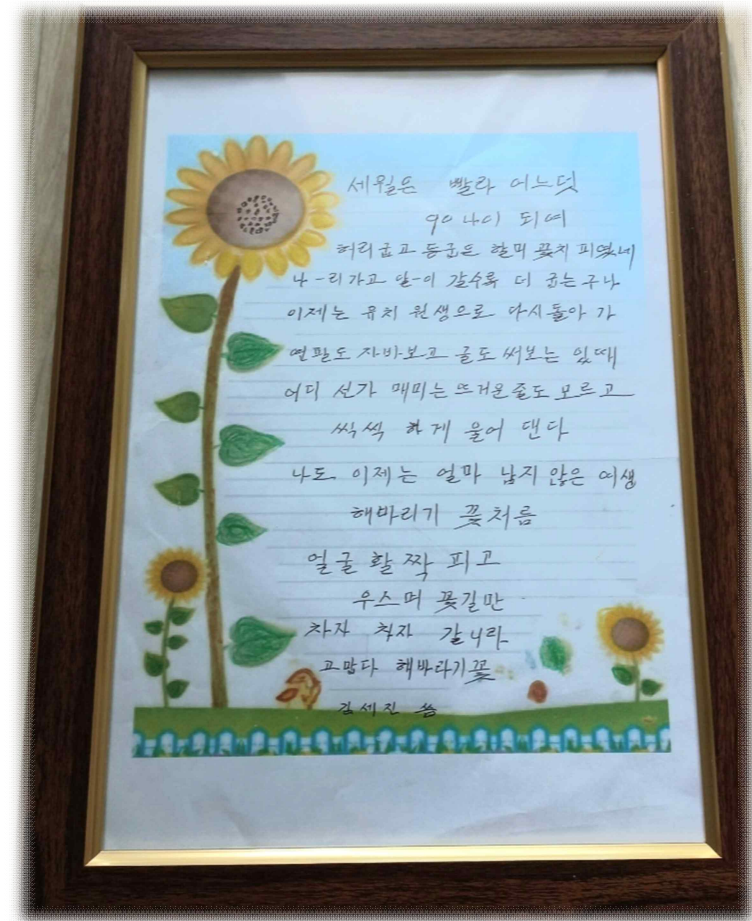 세월은 빨라 어느덧
90 나이 되여
허리굽고 등굽은 할미 꽃치 피였네
나-리가고 달-이 갈수록 더 굽는구나
이제는 유치 원생으로 다시돌아 가
연필도 자바보고 글도 써보는 있때
어디 선가 매미는 뜨거운줄도 모르고
씩씩 하게 울어 댄다
나도 이제는 얼마 남지 않은 여생
해바리기 꽃처름
얼굴 활짝 피고
우스며 꽃길만
차자 차자 갈니라
고맙다 해바라기꽃
김세진 씀